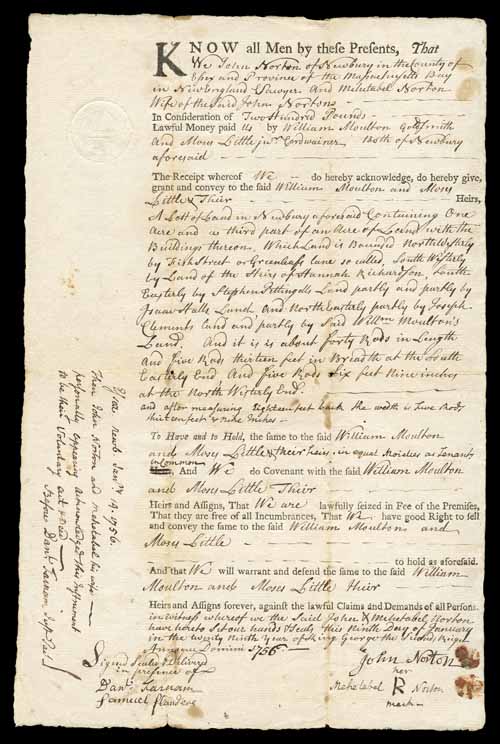 KNOW all Men by these Presents, That
We John Norton of Newbury in the County of
Essex and Province of the Massachusetts Bay
in New England Sawyer And Mehetabel Norton
Wife of the said John Norton
In Consideration of Two Hundred Pounds
Lawful Money paid Us by William Moulton Goldsmith
And Moses Little junr. Cordwainer both of Newbury
aforesaid
The Receipt whereof We do hereby acknowledge, do hereby give,
grant and convey to the said William Moulton and Moses
Little & Their Heirs,
A Lott of Land in Newbury aforesaid Containing One
Acre and a third part of an Acre of Land with the
Buildings thereon, Which Land is Bounded Northwesterly
by Fish Street or Greenleafs lane so called, South Westerly
by Land of the Heirs of Hannah Richardson, South
Easterly by Stephen Pettingalls Land partly and partly by
Isaac Halls Land, And North Easterly partly by Joseph
Clements Land and partly by Said Willm. Moulton's
Land. And it is about forty Rods in Length
And five Rods thirteen feet in Breadth at the South
Easterly End And five Rods Six feet Nine inches
at the North Westerly End.
and after measuring Eighteen feet back the wedth is Five Rods
feet & Nine Inches
To Have and to Hold, the same to the said William Moulton
and Moses Little & their heirs in equal Moieties as Tenants
in Common And We do Covenant with the said William Moulton
and Moses Little Their
Heirs and Assigns, That We are lawfully seized in Fee of the Premises,
That they are free of all Incumbrances, That We have good Right to sell
and convey the same to the said William Moulton and
Moses Little
to hold as aforesaid.
And that We will warrant and defend the same to the said William
Moulton and Moses Little their
Heirs and Assigns forever, against the lawful Claims and Demands of all Persons.
In witness whereof we the Said John & Mehetabel Norton
have hereto Set our hands & Seals this Ninth Day of January
in the twenty Ninth Year of King George the Second's Reign
Annoque Domini 1756
Signed Sealed & Delivered
in presence of
Danl. Farnam
Samuel Flanders
John Norton
her
Mehetabel R Norton
mark
Essex Newb. Janry 9. 1756
Then John Norton and Mehetabel his wife
personally appearing acknowledged this Instrument
to be their Voluntary act & Deed
Before Danl. Farnam Just. Pacis